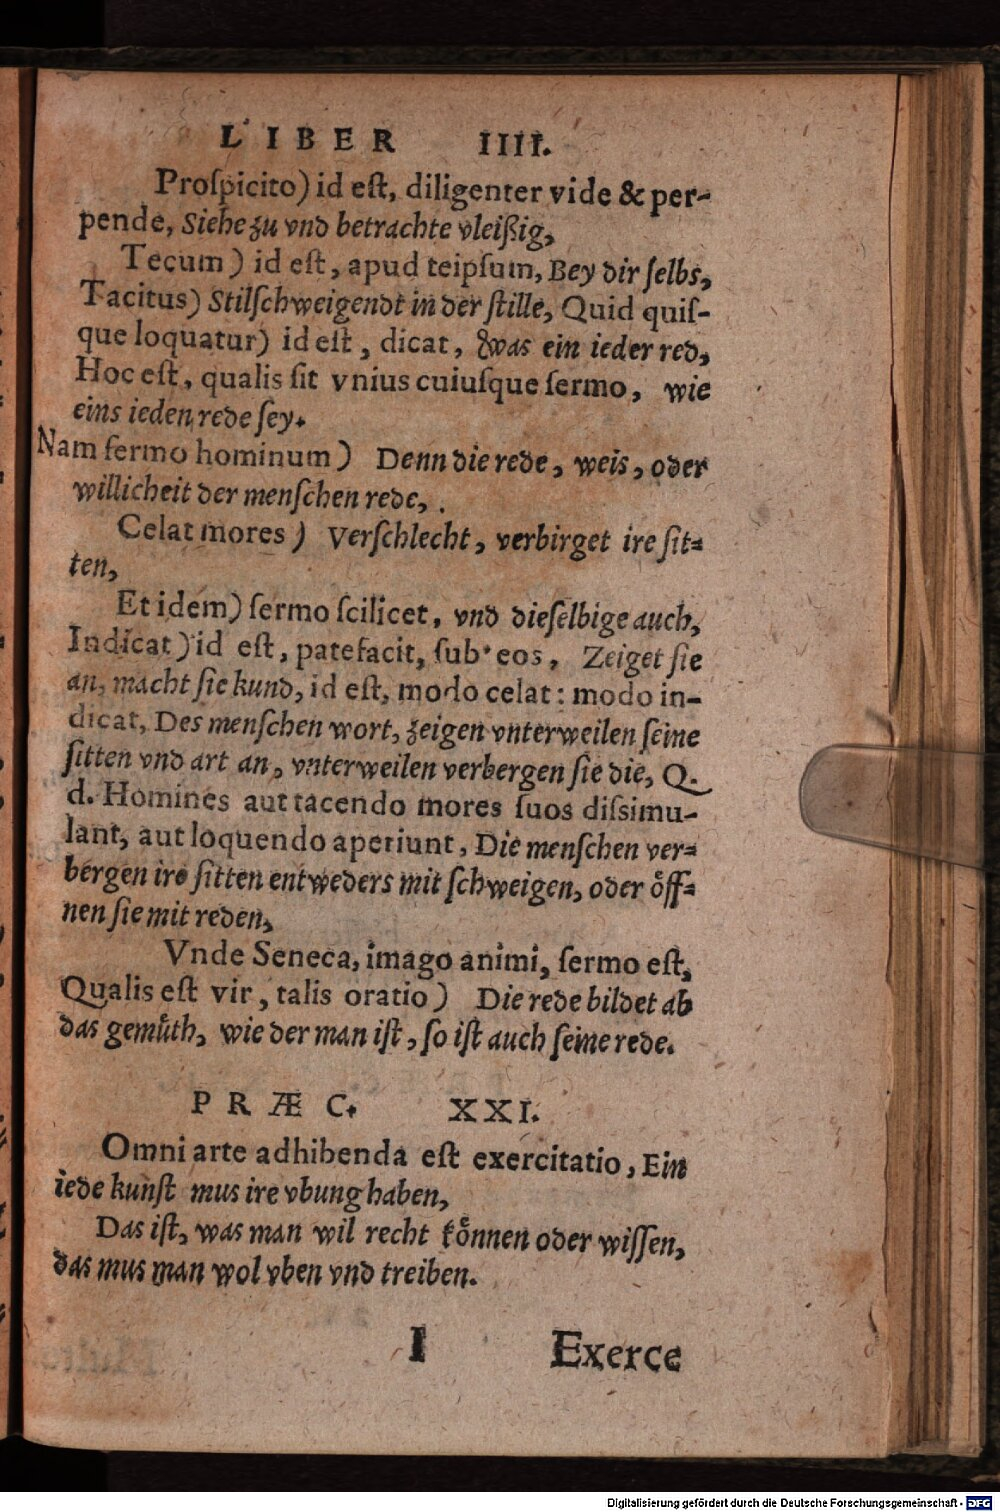 LIBER IIII.
Proſpicito) id eſt, diligenter vide & per-
pende, Siehe zu vnd betrachte vleißig,
Tecum) id eſt, apud teipſum, Bey dir ſelbs,
Tacitus) Stilſchweigendt in der ſtille, Quid quiſ-
que loquatur) id eſt, dicat, was ein ieder red,
Hoc eſt, qualis ſit vnius cuiuſque ſermo, wie
eins ieden rede ſey.
Nam ſermo hominum) Denn die rede, weis, oder
willicheit der menſchen rede, .
Celat mores) Verſchlecht, verbirget ire ſit=
ten,
Et idem) ſermo ſcilicet, vnd dieſelbige auch,
Indicat) id eſt, patefacit, ſub eos, Zeiget ſie
an, macht ſie kund, id eſt, modo celat: modo in-
dicat, Des menſchen wort, zeigen vnterweilen ſeine
ſitten vnd art an, vnterweilen verbergen ſie die, Q.
d. Homines aut tacendo mores ſuos diſsimu-
lant, aut loquendo aperiunt, Die menſchen ver=
bergen ire ſitten entweders mit ſchweigen, oder oͤff=
nen ſie mit reden,
Vnde Seneca, imago animi, ſermo eſt,
Qualis eſt vir, talis oratio) Die rede bildet ab
das gemuͤth, wie der man iſt, ſo iſt auch ſeine rede.
PRÆC. XXI.
Omni arte adhibenda eſt exercitatio, Ein
iede kunſt mus ire vbung haben,
Das iſt, was man wil recht koͤnnen oder wiſſen,
das mus man wol vben vnd treiben.
I Exerce
Digitalisierung gefördert durch die Deutsche Forschungsgemeinschaft - DFG